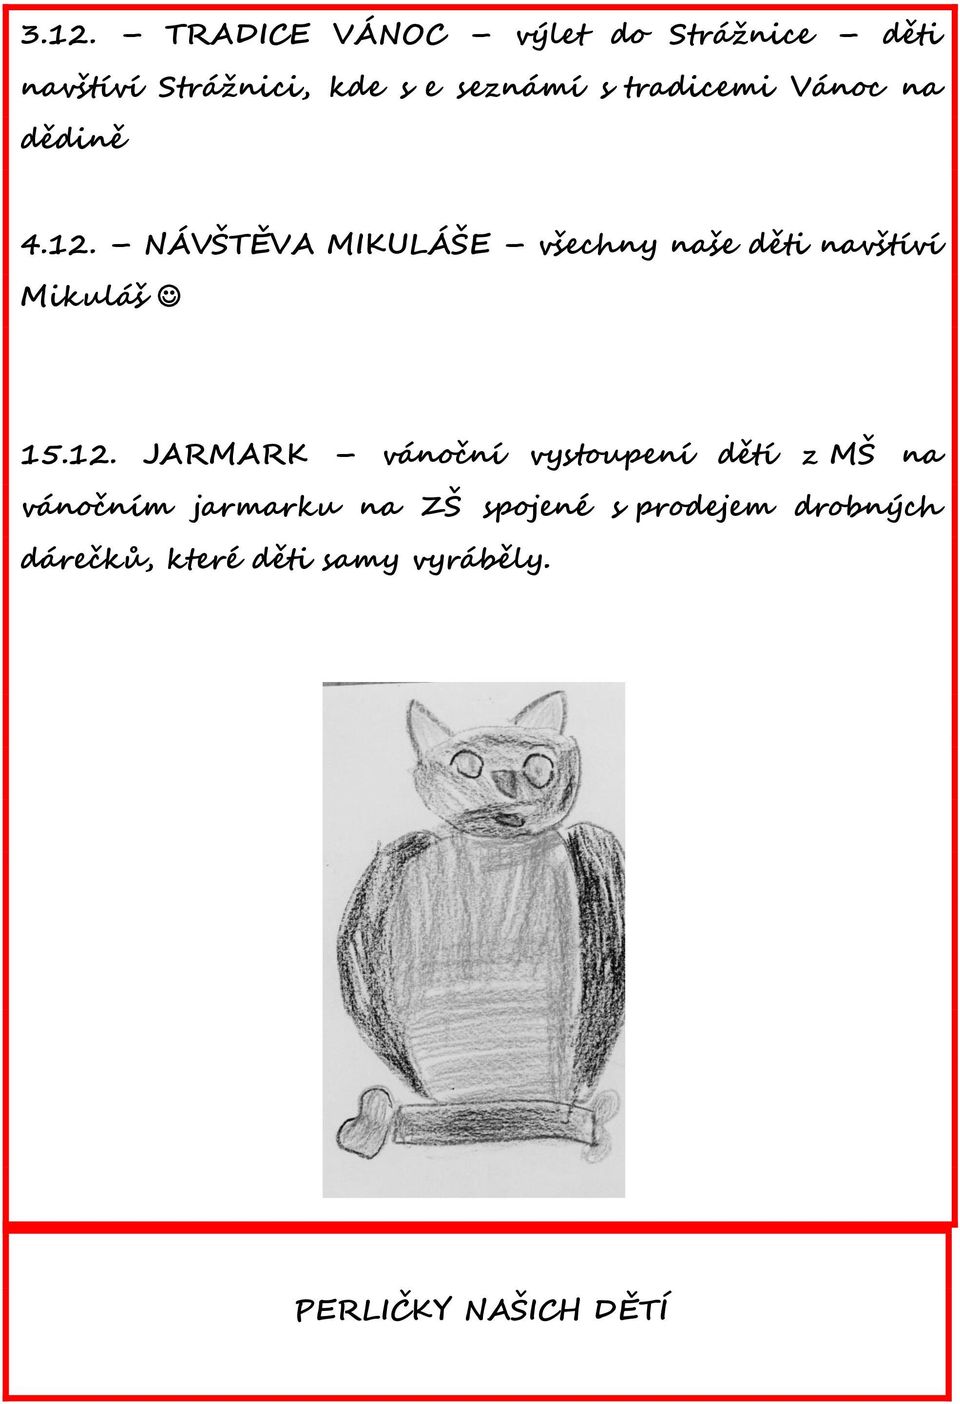 3.12. – TRADICE VÁNOC – výlet do Strážnice – děti
navštíví Strážnici, kde s e seznámí s tradicemi Vánoc na
dědině
4.12. – NÁVŠTĚVA MIKULÁŠE – všechny naše děti navštíví
Mikuláš ☺
15.12. JARMARK – vánoční vystoupení dětí z MŠ na
vánočním jarmarku na ZŠ spojené s prodejem drobných
dárečků, které děti samy vyráběly.
PERLIČKY NAŠICH DĚTÍ